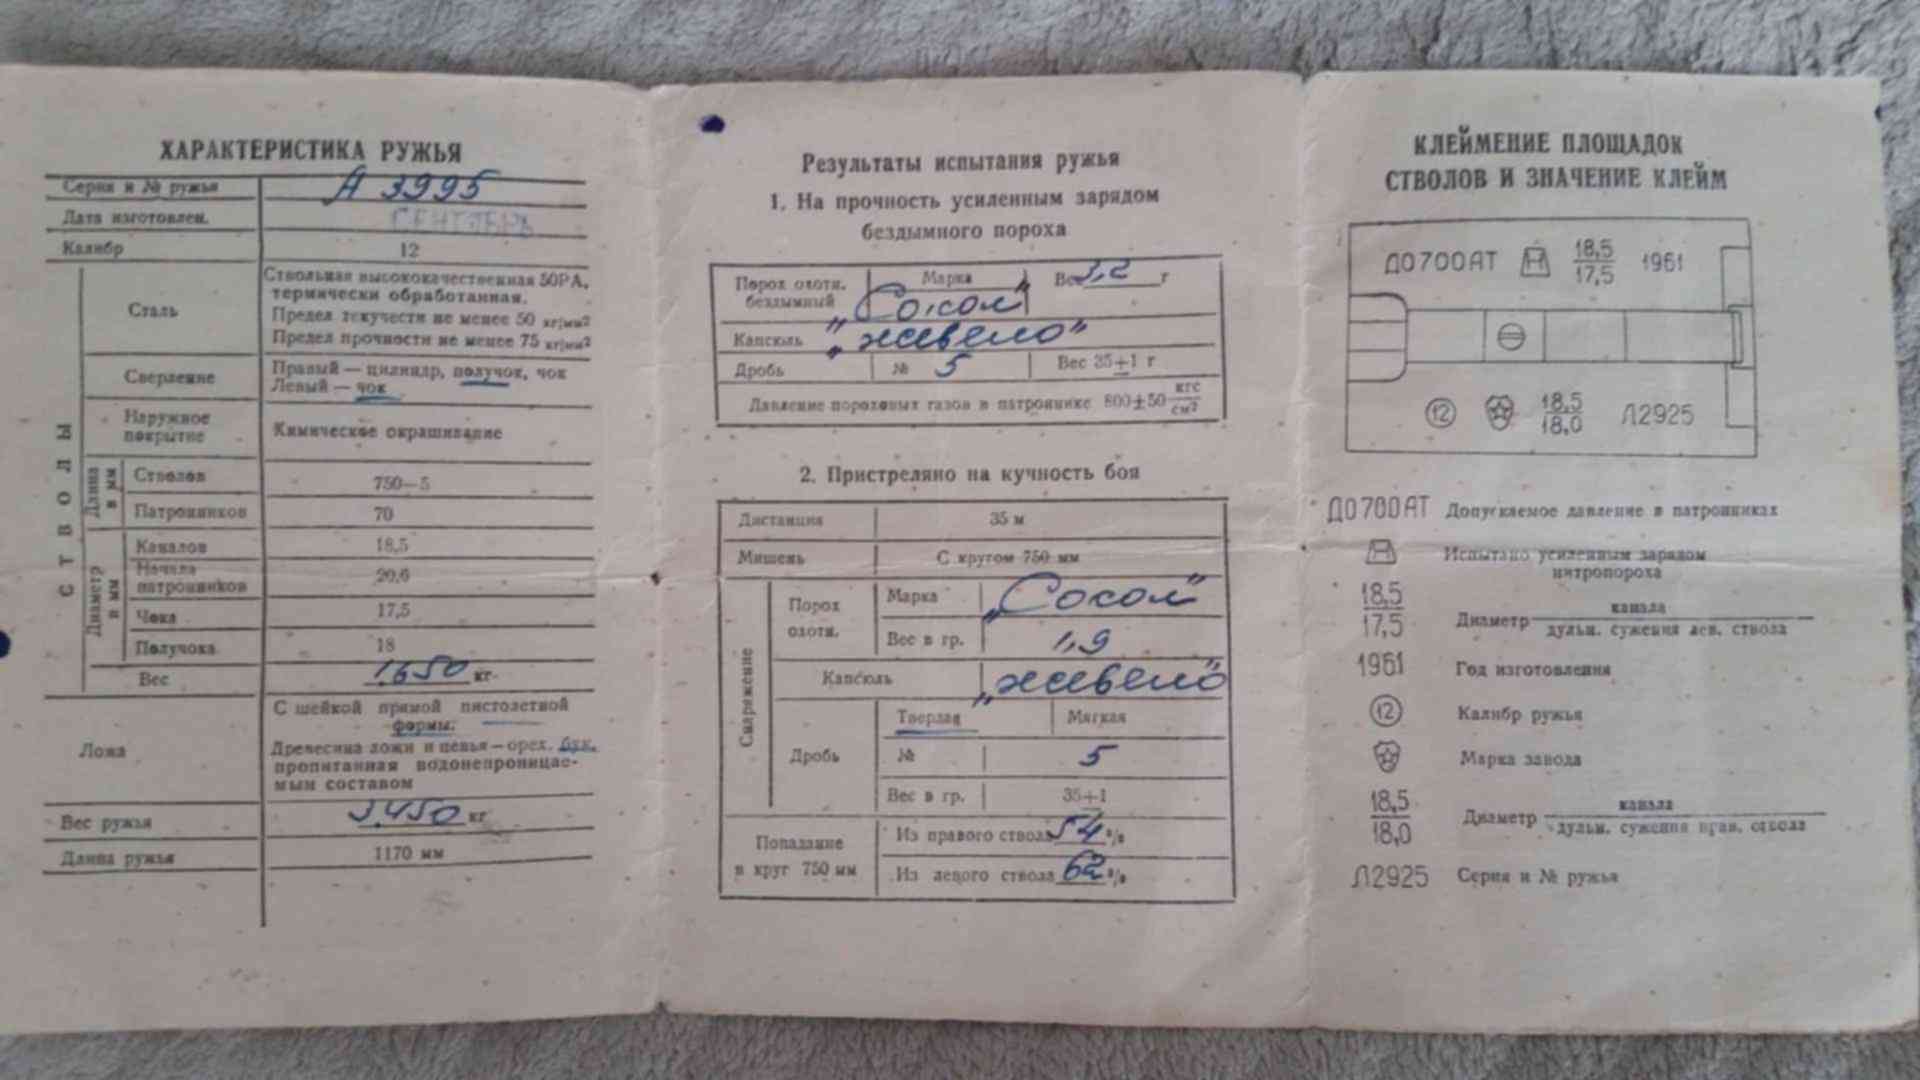 ХАРАКТЕРИСТИКА РУЖЬЯ
Серия и № ружья А 3995
Дата изготовлен. СЕНТЯБРЬ
Калибр 12
СТВОЛЫ
Сталь
Ствольная высококачественная 50РА,
термически обработанная.
Предел текучести не менее 50 кг/мм²
Предел прочности не менее 75 кг/мм²
Сверление
Правый — цилиндр, получок, чок
Левый — чок
Наружное покрытие
Химическое окрашивание
Длина в мм
Стволов 750—5
Патронников 70
Диаметр в мм
Каналов 18,5
Начала патронников 20,6
Чока 17,5
Получока 18
Вес 1.650 кг
Ложа
С шейкой прямой пистолетной
формы.
Древесина ложи и цевья — орех, бук,
пропитанная водонепроницае-
мым составом
Вес ружья 3.450 кг
Длина ружья 1170 мм
Результаты испытания ружья
1. На прочность усиленным зарядом
бездымного пороха
Порох охотн. бездымный Марка „Сокол" Вес 3,2 г
Капсюль „жевело"
Дробь № 5 Вес 35±1 г
Давление пороховых газов в патроннике 800±50 кгс/см²
2. Пристреляно на кучность боя
Дистанция 35 м
Мишень С кругом 750 мм
Снаряжение
Порох охотн.
Марка „Сокол"
Вес в гр. 1,9
Капсюль „жевело"
Дробь
Твердая Мягкая
№ 5
Вес в гр. 35±1
Попадание
в круг 750 мм
Из правого ствола 54 %
Из левого ствола 62 %
КЛЕЙМЕНИЕ ПЛОЩАДОК
СТВОЛОВ И ЗНАЧЕНИЕ КЛЕЙМ
ДО700АТ 18,5/17,5 1961
12 18,5/18,0 Л2925
ДО700АТ Допускаемое давление в патронниках
Испытано усиленным зарядом
нитропороха
18,5/17,5 Диаметр канала/дульн. сужения лев. ствола
1961 Год изготовления
12 Калибр ружья
Марка завода
18,5/18,0 Диаметр канала/дульн. сужения прав. ствола
Л2925 Серия и № ружья